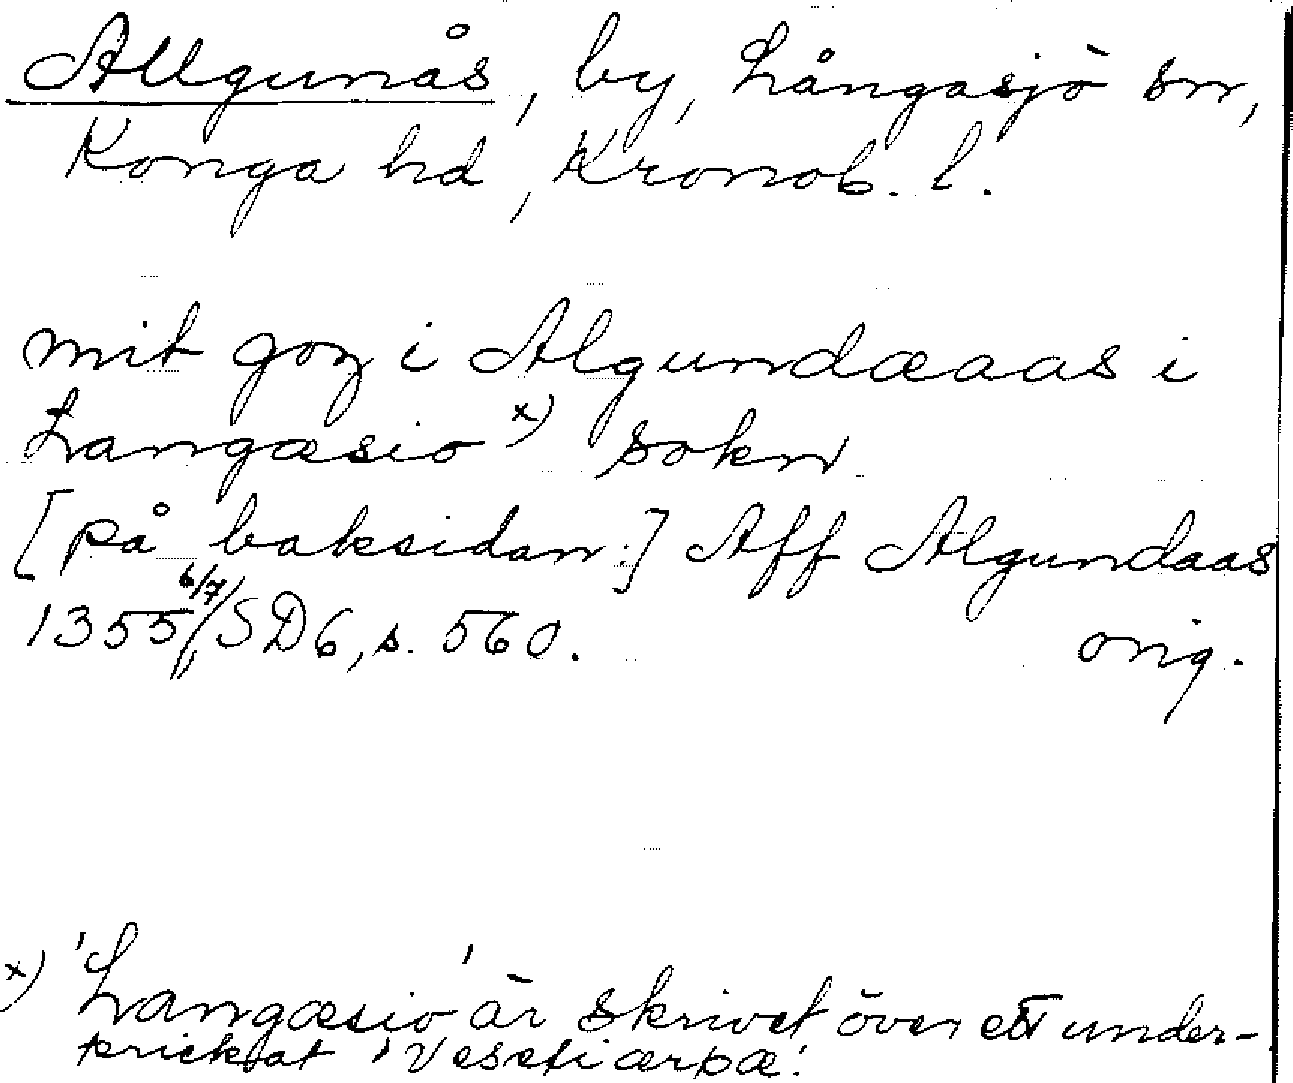 Allgunås, by, Långasjö sn,
Konga hd, Kronob. l.
mit goz i Algundæaas i
Langæsio x) sokn
[på baksidan:] Aff Algundaas
1355 6/7, SD 6, s. 560. orig.
x) 'Langæsio' är skrivet över ett under-
prickat '